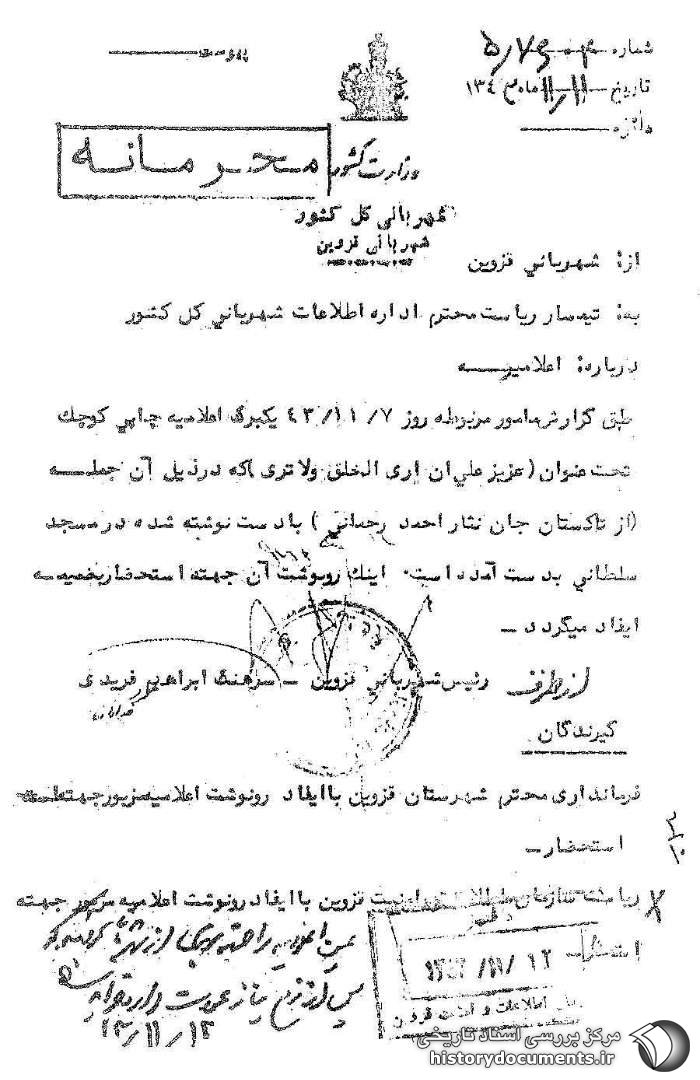 شماره ۵٫۷۶۰۴
تاریخ ۱۱٫۱۱ ماه ۱۳۴۳
دائره
پیوست
محرمانه
وزارت کشور
شهربانی کل کشور
شهربانی قزوین
از: شهربانی قزوین
به: تیمسار ریاست محترم اداره اطلاعات شهربانی کل کشور
درباره: اعلامیه
طبق گزارش مامور مربوطه روز ۴۳/۱۱/۷ یکبرگ اعلامیه چاپی کوچک
تحت عنوان (عزیز علی ان اری الخلق ولاتری) که درذیل آن جمله
(از تاکستان جان نثار احمد رحمانی) با دست نوشته شده در مسجد
سلطانی بدست آمده است. اینک رونوشت آن جهته استحضار بضمیمه
ایفاد میگردد -
از طرف رئیس شهربانی قزوین - سرهنگ ابراهیم فریدی
گیرندگان
فرمانداری محترم شهرستان قزوین با ایفاد رونوشت اعلامیه مزبور جهته
استحضار -
ریاست سازمان اطلاعات و امنیت قزوین با ایفاد رونوشت اعلامیه مزبور جهته
۱۳۴۳/۱۱/۱۲
اطلاعات و امنیت قزوین
عین اعلامیه را
پس از
۱۳/۱۱/۱۲
مرکز بررسی اسناد تاریخی
historydocuments.ir